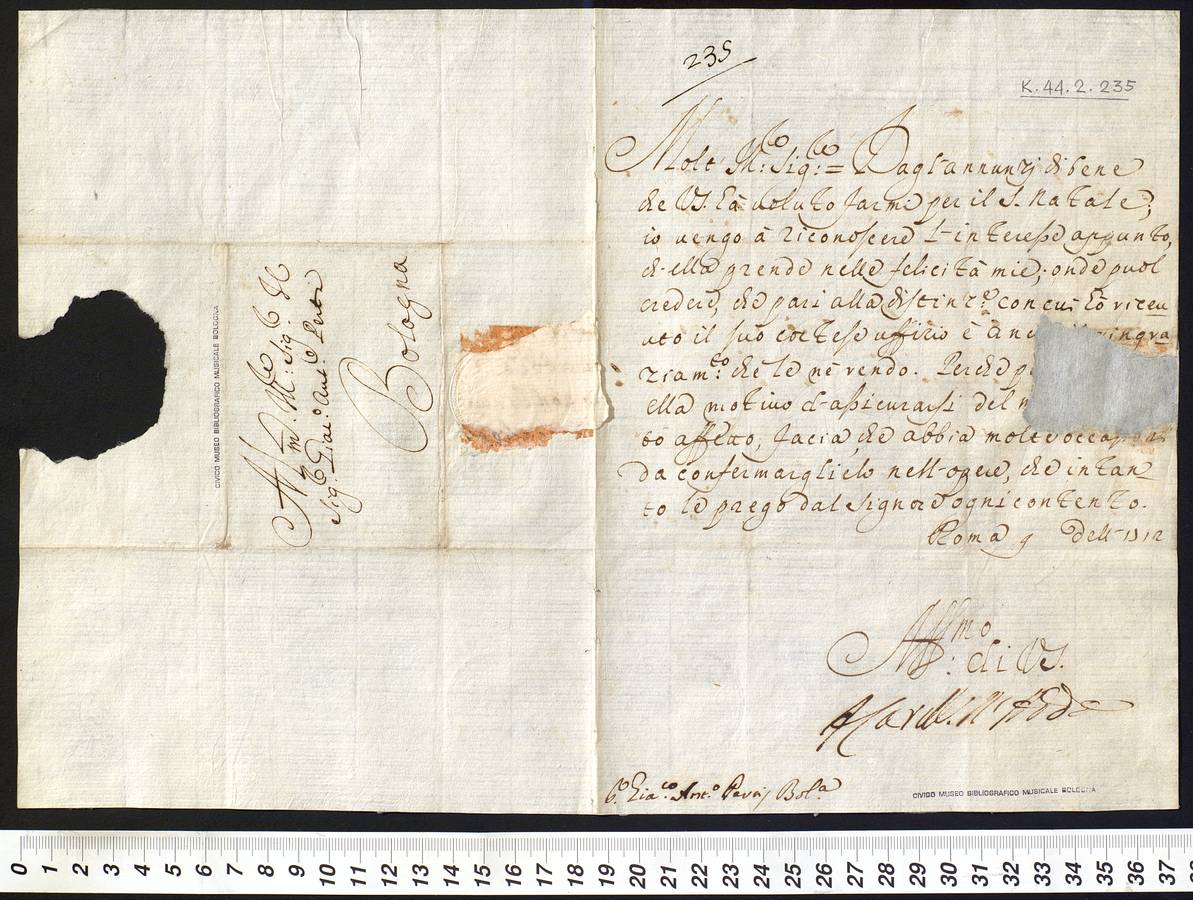 235
K.44.2.235
Molt' Ill:re Sig:re = Dagl'annunzj di bene
che VS. hà voluto farmi per il S. Natale;
io vengo à riconoscere l'interesse appunto,
ch'ella prende nelle felicità mie; onde puol
credere, che pari alla distinz.e con cui hò riceu
uto il suo cortese uffizio è anc ringra
ziam:to che le ne rendo. Perche
ella motivo d'assicurarsi del
to affetto, facia, che abbia molte occa
da confermarglielo nell'opere, che intan
to le prego dal Signore ogni contento.
Roma 9 dell' 1712
Aff:mo di VS.
Gia.co Ant.o Perti Bol.a
CIVICO MUSEO BIBLIOGRAFICO MUSICALE BOLOGNA
CIVICO MUSEO BIBLIOGRAFICO MUSICALE BOLOGNA
Al M: Ill:re Sig:
Sig:re Giac:o Ant:o Perti
Bologna
0 1 2 3 4 5 6 7 8 9 10 11 12 13 14 15 16 17 18 19 20 21 22 23 24 25 26 27 28 29 30 31 32 33 34 35 36 37